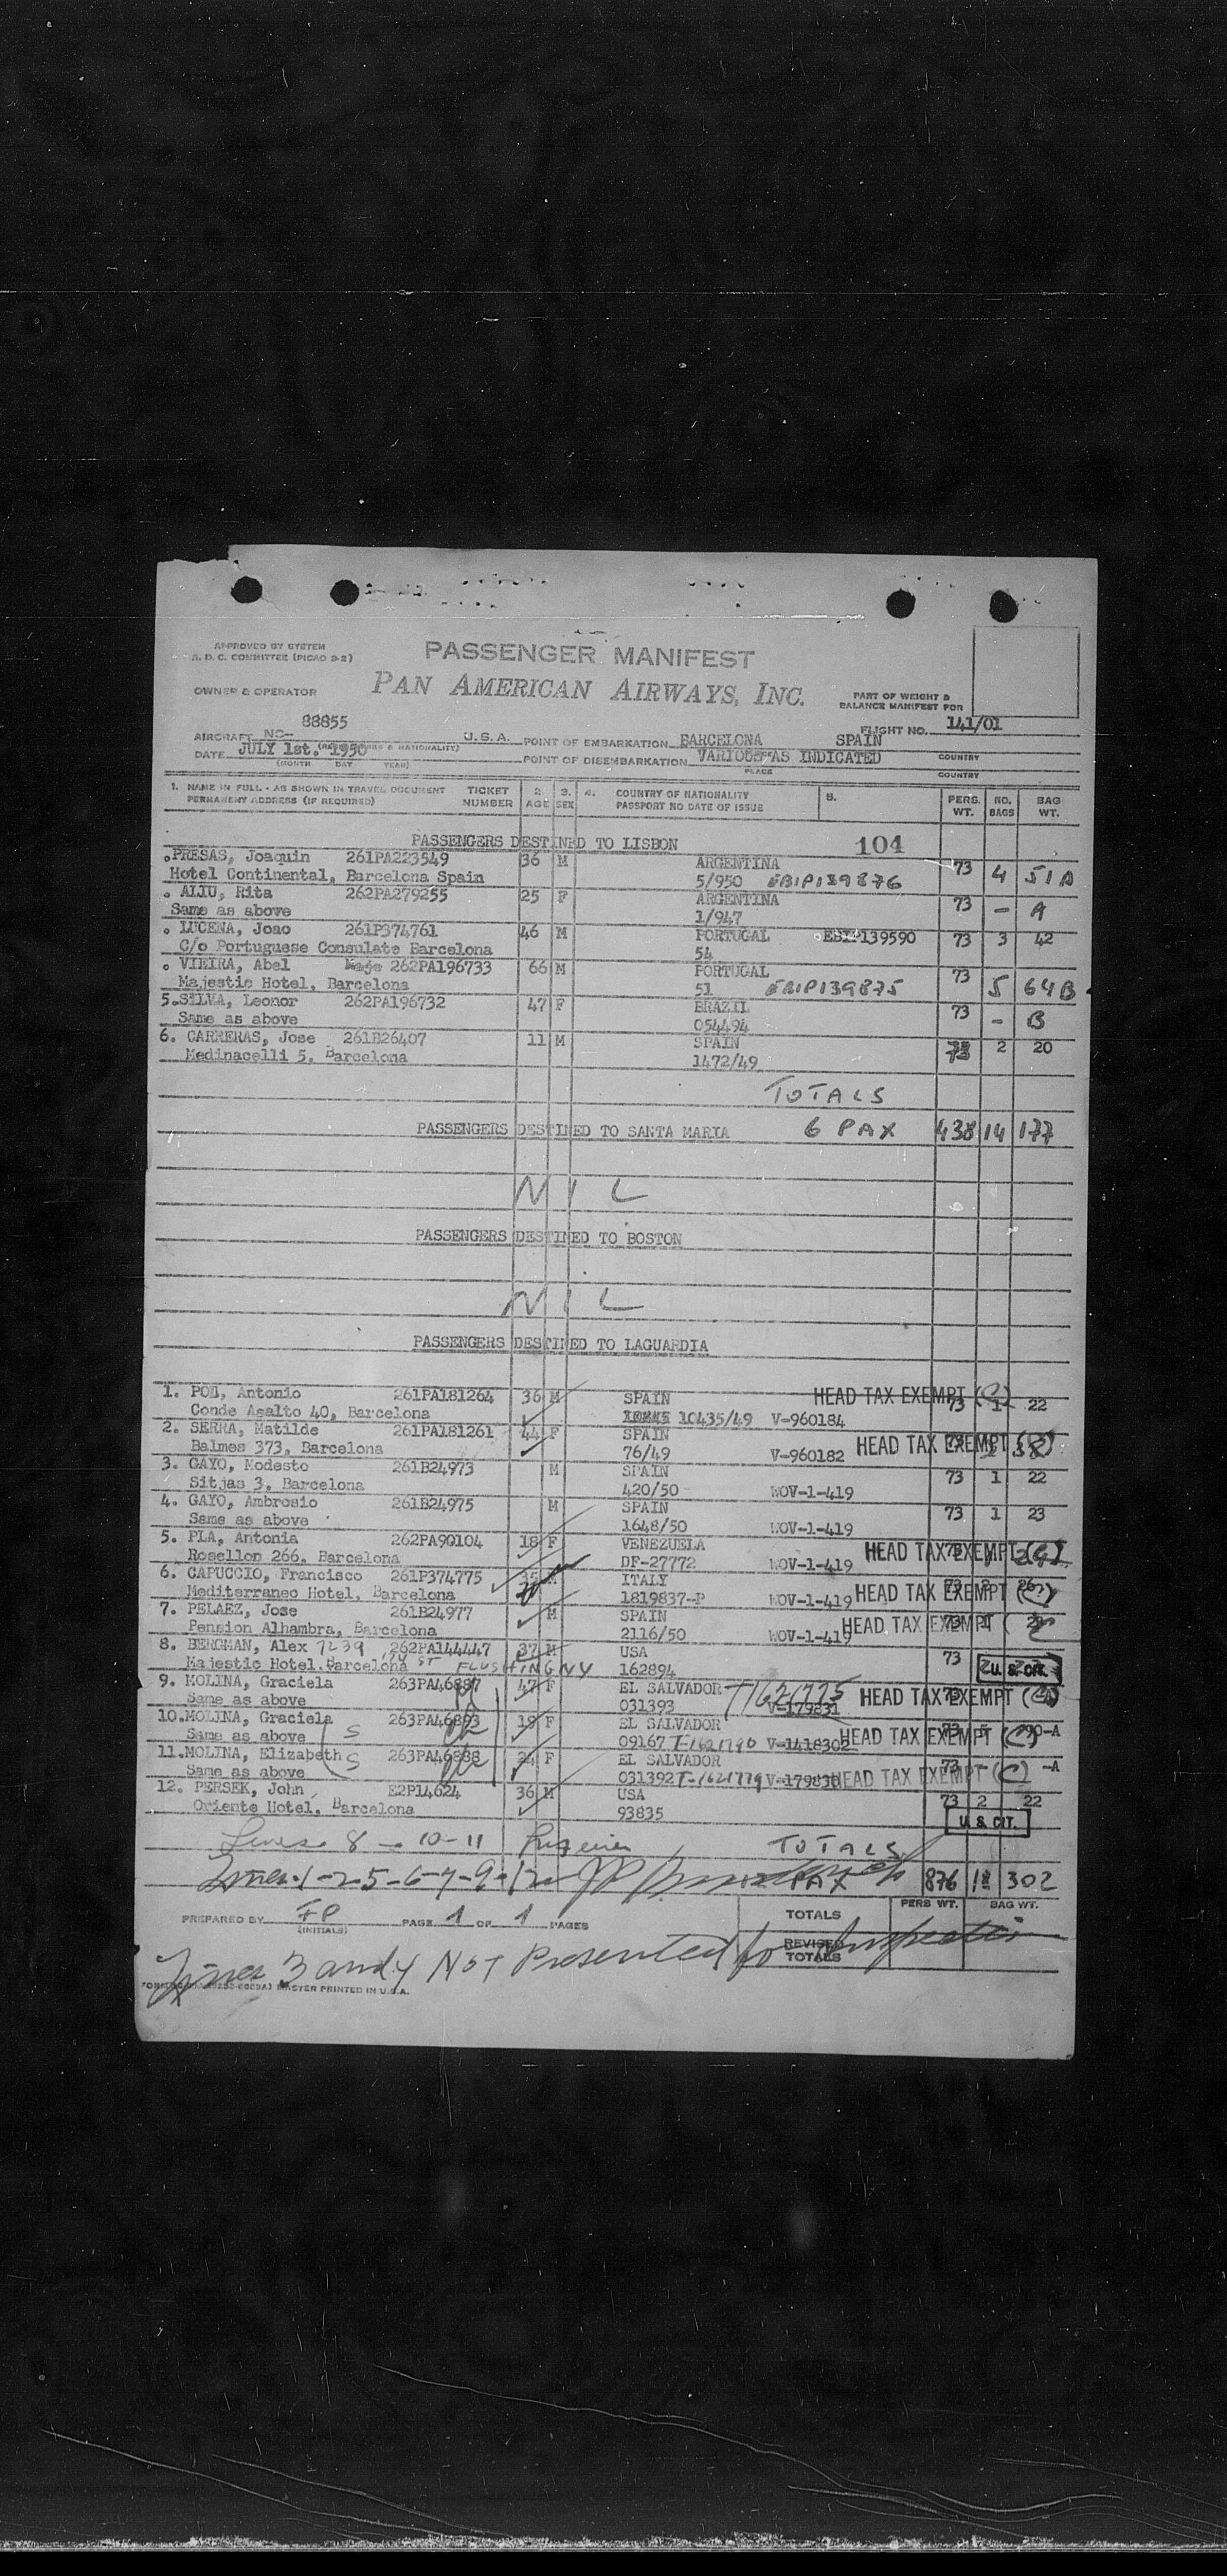 APPROVED BY SYSTEM
A. D. C. COMMITTEE (PICAO 9-2)
PASSENGER MANIFEST
PAN AMERICAN AIRWAYS, INC.
OWNER & OPERATOR
PART OF WEIGHT &
BALANCE MANIFEST FOR
FLIGHT NO. 141/01
88855
AIRCRAFT NC- U.S.A. POINT OF EMBARKATION BARCELONA SPAIN
DATE JULY 1st. 1950 POINT OF DISEMBARKATION VARIOUS AS INDICATED COUNTRY
(MONTH DAY YEAR) PLACE COUNTRY
1. NAME IN FULL - AS SHOWN IN TRAVEL DOCUMENT TICKET 2. 3. 4. COUNTRY OF NATIONALITY 5. PERS. NO. BAG
PERMANENT ADDRESS (IF REQUIRED) NUMBER AGE SEX PASSPORT NO DATE OF ISSUE WT. BAGS WT.
PASSENGERS DESTINED TO LISBON 104
PRESAS, Joaquin 261PA223549 36 M ARGENTINA 73 4 51 A
Hotel Continental, Barcelona Spain 5/950 EBIP139876
ALIU, Rita 262PA279255 25 F ARGENTINA 73 - A
Same as above 1/947
LUCENA, Joao 261P374761 46 M PORTUGAL EBIP139590 73 3 42
C/o Portuguese Consulate Barcelona 54
VIEIRA, Abel 262PA196733 66 M PORTUGAL 73 5 64 B
Majestic Hotel, Barcelona 51 EBIP139875
5. SILVA, Leonor 262PA196732 47 F BRAZIL 73 - B
Same as above 054494
6. CARRERAS, Jose 261B26407 11 M SPAIN 73 2 20
Medinacelli 5, Barcelona 1472/49
TOTALS
PASSENGERS DESTINED TO SANTA MARIA 6 PAX 438 14 177
NIL
PASSENGERS DESTINED TO BOSTON
NIL
PASSENGERS DESTINED TO LAGUARDIA
1. POU, Antonio 261PA181264 36 M SPAIN HEAD TAX EXEMPT 73 1 22
Conde Asalto 40, Barcelona 10435/49 V-960184
2. SERRA, Matilde 261PA181261 44 F SPAIN HEAD TAX EXEMPT
Balmes 373, Barcelona 76/49 V-960182
3. GAYO, Modesto 261B24973 M SPAIN 73 1 22
Sitjas 3, Barcelona 420/50 WOV-1-419
4. GAYO, Ambrosio 261B24975 M SPAIN 73 1 23
Same as above 1648/50 WOV-1-419
5. PLA, Antonia 262PA90104 18 F VENEZUELA HEAD TAX EXEMPT
Rosellon 266, Barcelona DF-27772 WOV-1-419
6. CAPUCCIO, Francisco 261P374775 ITALY HEAD TAX EXEMPT
Mediterraneo Hotel, Barcelona 1819837-P WOV-1-419
7. PELAEZ, Jose 261B24977 M SPAIN HEAD TAX EXEMPT
Pension Alhambra, Barcelona 2116/50 WOV-1-419
8. BERGMAN, Alex 7239 262PA144447 37 M USA 73
Majestic Hotel, Barcelona ST FLUSHING NY 162894 U.S. CIT.
9. MOLINA, Graciela 263PA46887 47 F EL SALVADOR T1621775 HEAD TAX EXEMPT
Same as above 031393 V-179831
10. MOLINA, Graciela 263PA46893 19 F EL SALVADOR HEAD TAX EXEMPT 90-A
Same as above S 09167 T-1621790 V-1418302
11. MOLINA, Elizabeth S 263PA46888 24 F EL SALVADOR HEAD TAX EXEMPT (C) -A
Same as above 031392 T-1621779 V-179830
12. PERSEK, John E2P14624 36 M USA 73 2 22
Oriente Hotel, Barcelona 93835 U.S. CIT.
Lines 8 - 10-11 TOTALS
Lines 1-2-5-6-7-9-12 PAX 876 18 302
PREPARED BY FP PAGE 1 OF 1 PAGES TOTALS PERS WT. BAG WT.
(INITIALS)
REVISED TOTALS
Lines 3 and 4 Not Presented for Inspection
MASTER PRINTED IN U.S.A.